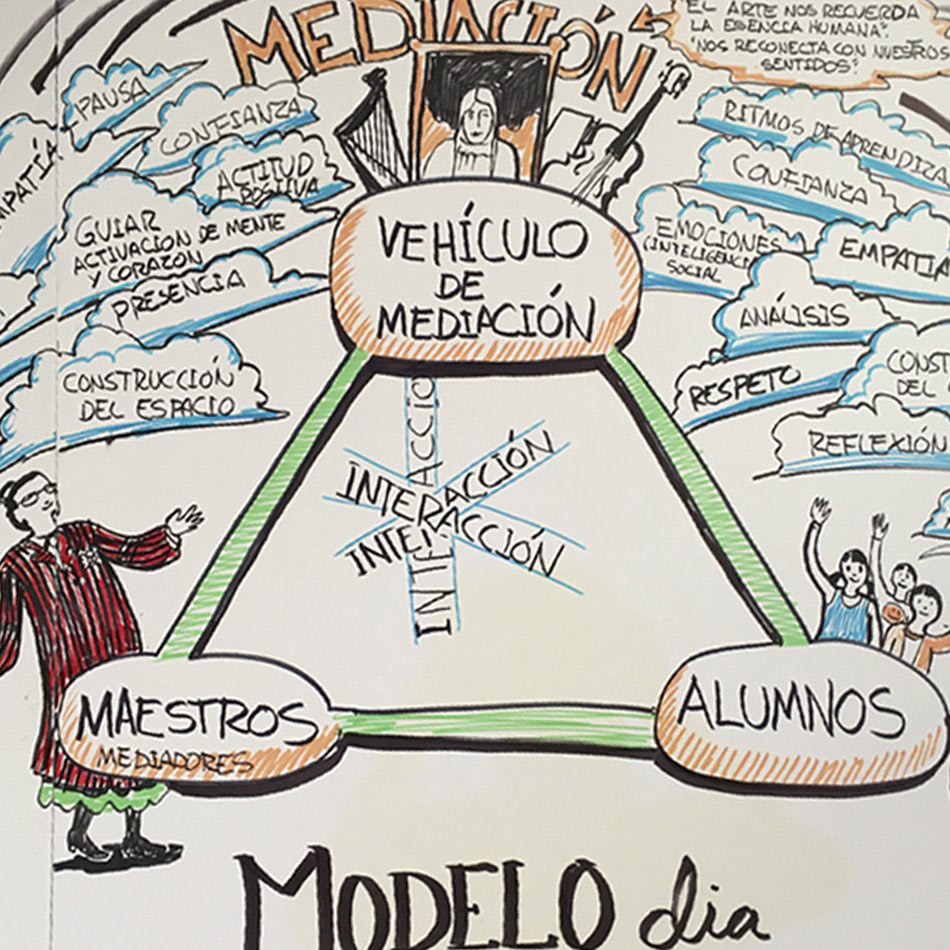 MEDIACIÓN
"EL ARTE NOS RECUERDA
LA ESENCIA HUMANA".
"NOS RECONECTA CON NUESTROS
SENTIDOS".
PAUSA
CONFIANZA
ACTITUD
POSITIVA
GUIAR
ACTIVACIÓN DE MENTE
Y CORAZÓN
PRESENCIA
CONSTRUCCIÓN
DEL ESPACIO
VEHÍCULO
DE
MEDIACIÓN
RITMOS DE APRENDIZA
CONFIANZA
EMOCIONES
(INTELIGENCIA
SOCIAL
EMPATÍA
ANÁLISIS
RESPETO
CONST
DEL
REFLEXIÓN
INTERACCIÓN
INTERACCIÓN
INTERACCIÓ
MAESTROS
MEDIADORES
ALUMNOS
MODELO dia